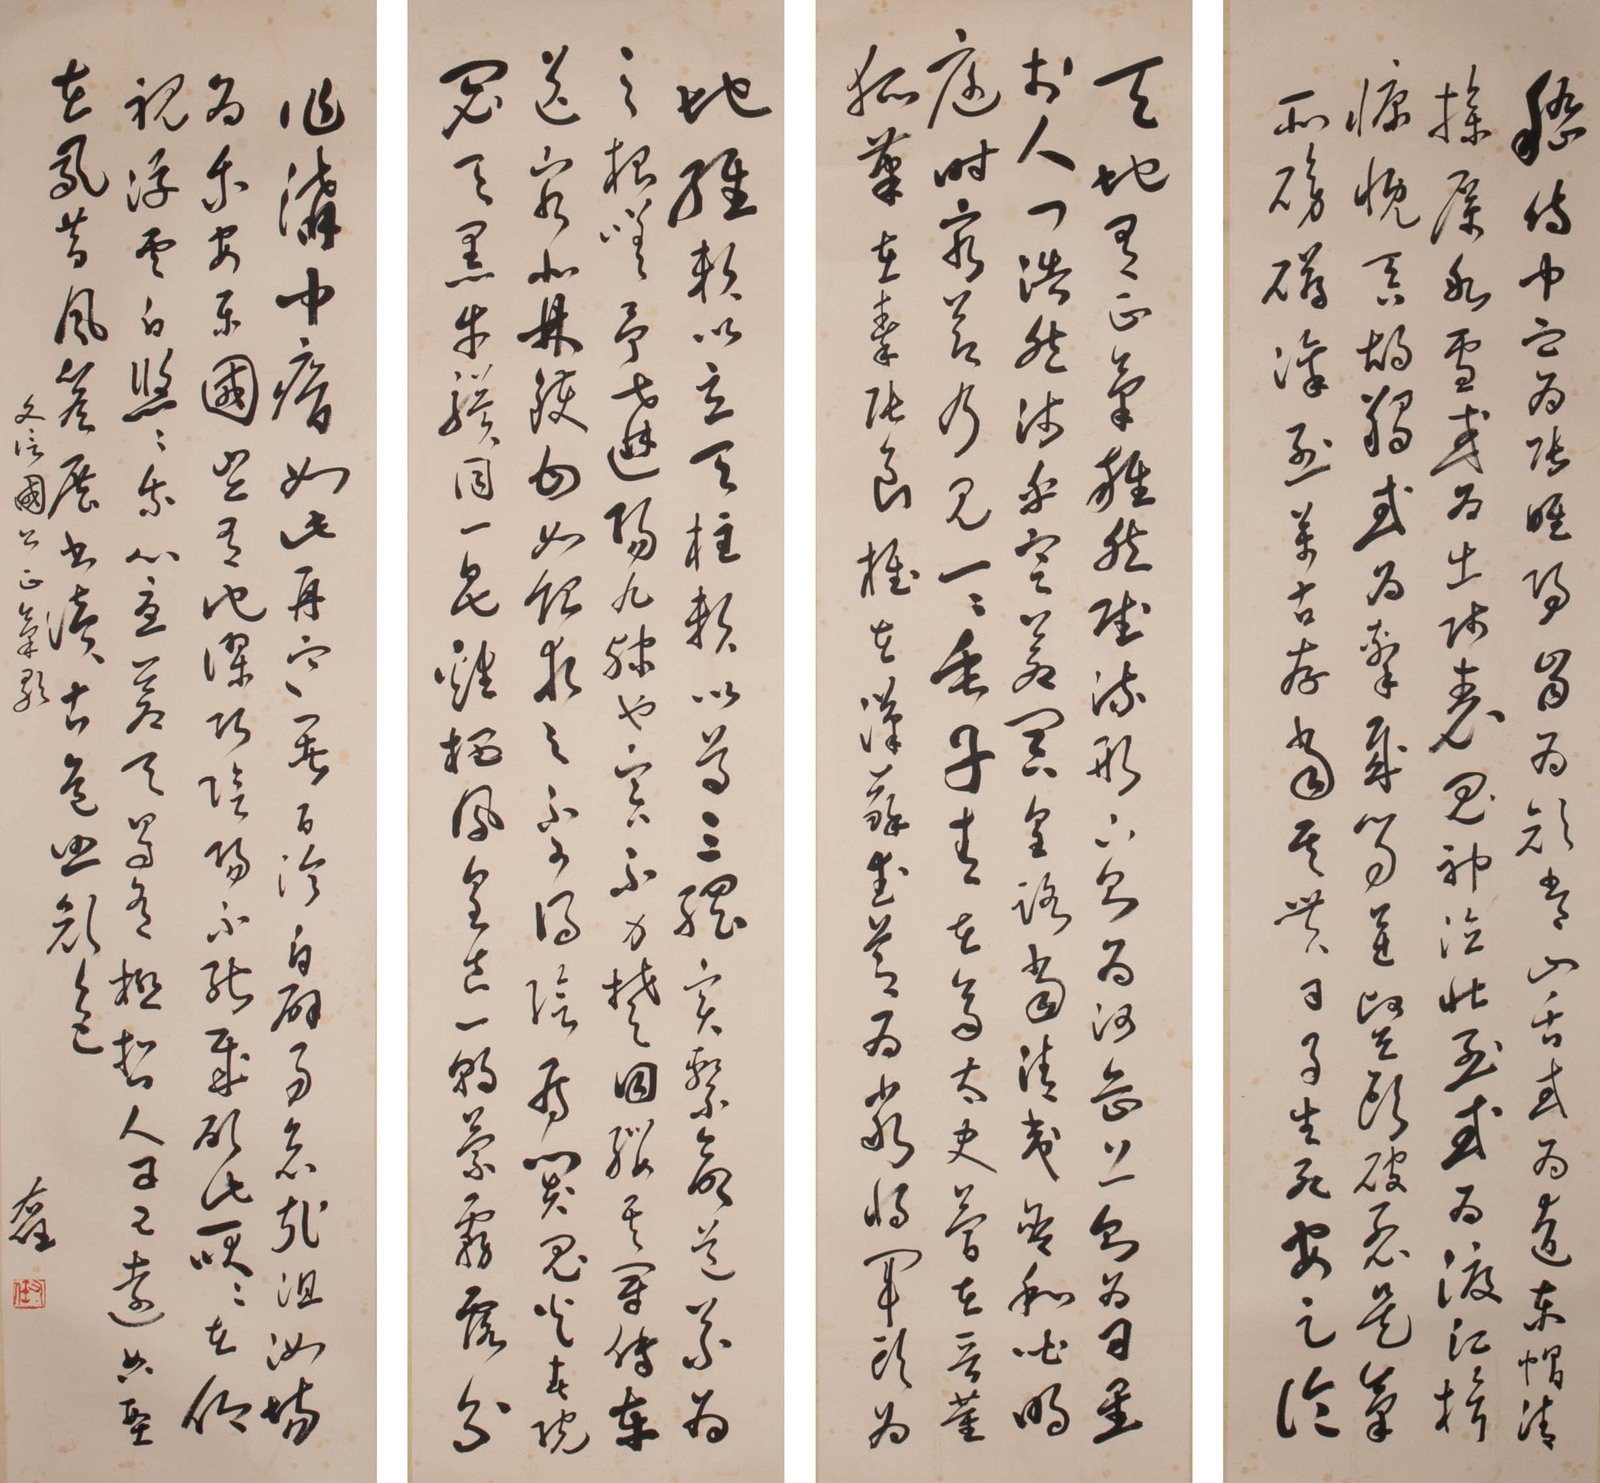 嵇侍中血為張睢陽齒為顏常山舌或為遼東帽清
操厲冰雪或為出師表鬼神泣壯烈或為渡江楫
慷慨吞胡羯或為擊賊笏逆豎頭破裂是氣
所磅礴凜烈萬古存當其貫日月生死安足論
天地有正氣雜然賦流形下則為河嶽上則為日星
於人曰浩然沛乎塞蒼冥皇路當清夷含和吐明
庭時窮節乃見一一垂丹青在齊太史簡在晉董
狐筆在秦張良椎在漢蘇武節為嚴將軍頭為
地維賴以立天柱賴以尊三綱實繫命道義為
之根嗟予遘陽九隸也實不力楚囚纓其冠傳車
送窮北鼎鑊甘如飴求之不可得陰房闃鬼火春院
閟天黑牛驥同一皂雞棲鳳凰食一朝蒙霧露分
作溝中瘠如此再寒暑百沴自辟易哀哉沮洳場
為我安樂國豈有他繆巧陰陽不能賊顧此耿耿在仰
視浮雲白悠悠我心悲蒼天曷有極哲人日已遠典型
在夙昔風簷展書讀古道照顏色
文信國公正氣歌
右任
右任